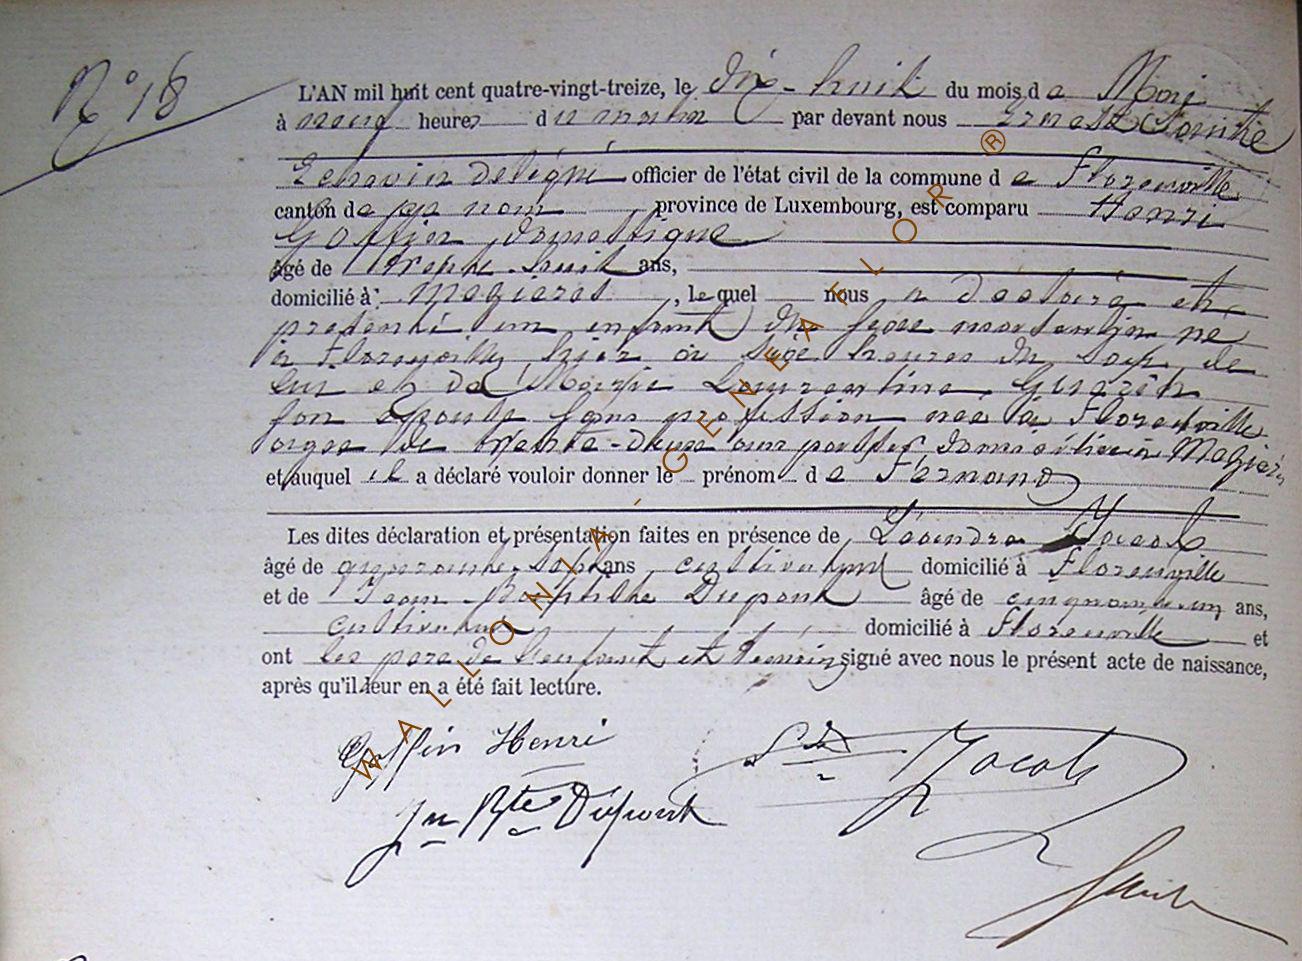 N° 18
L'AN mil huit cent quatre-vingt-treize, le dix-huit du mois de Mai
à neuf heures du matin par devant nous Ernest
Echevin délégué officier de l'état civil de la commune de Florenville
canton de ce nom province de Luxembourg, est comparu Henri
Goffin domestique
âgé de trente-huit ans,
domicilié à Mezières, le quel nous a déclaré et
présenté un enfant du sexe masculin né
à Florenville hier à six heures du soir de
lui et de Marie Laurentine
son épouse sans profession née à Florenville
agée de trente-deux ans domiciliée à Mezières
et auquel il a déclaré vouloir donner le prénom de Fernand
Les dites déclaration et présentation faites en présence de Léandre Jacob
âgé de quarante-sept ans cultivateur domicilié à Florenville
et de Jean-Baptiste Dupont âgé de ans,
cultivateur domicilié à Florenville et
ont les père de l'enfant et témoins signé avec nous le présent acte de naissance,
après qu'il leur en a été fait lecture.
Goffin Henri
Jacob
Jn Bte Dupont
WALLONIA - GENEAFLOR ®